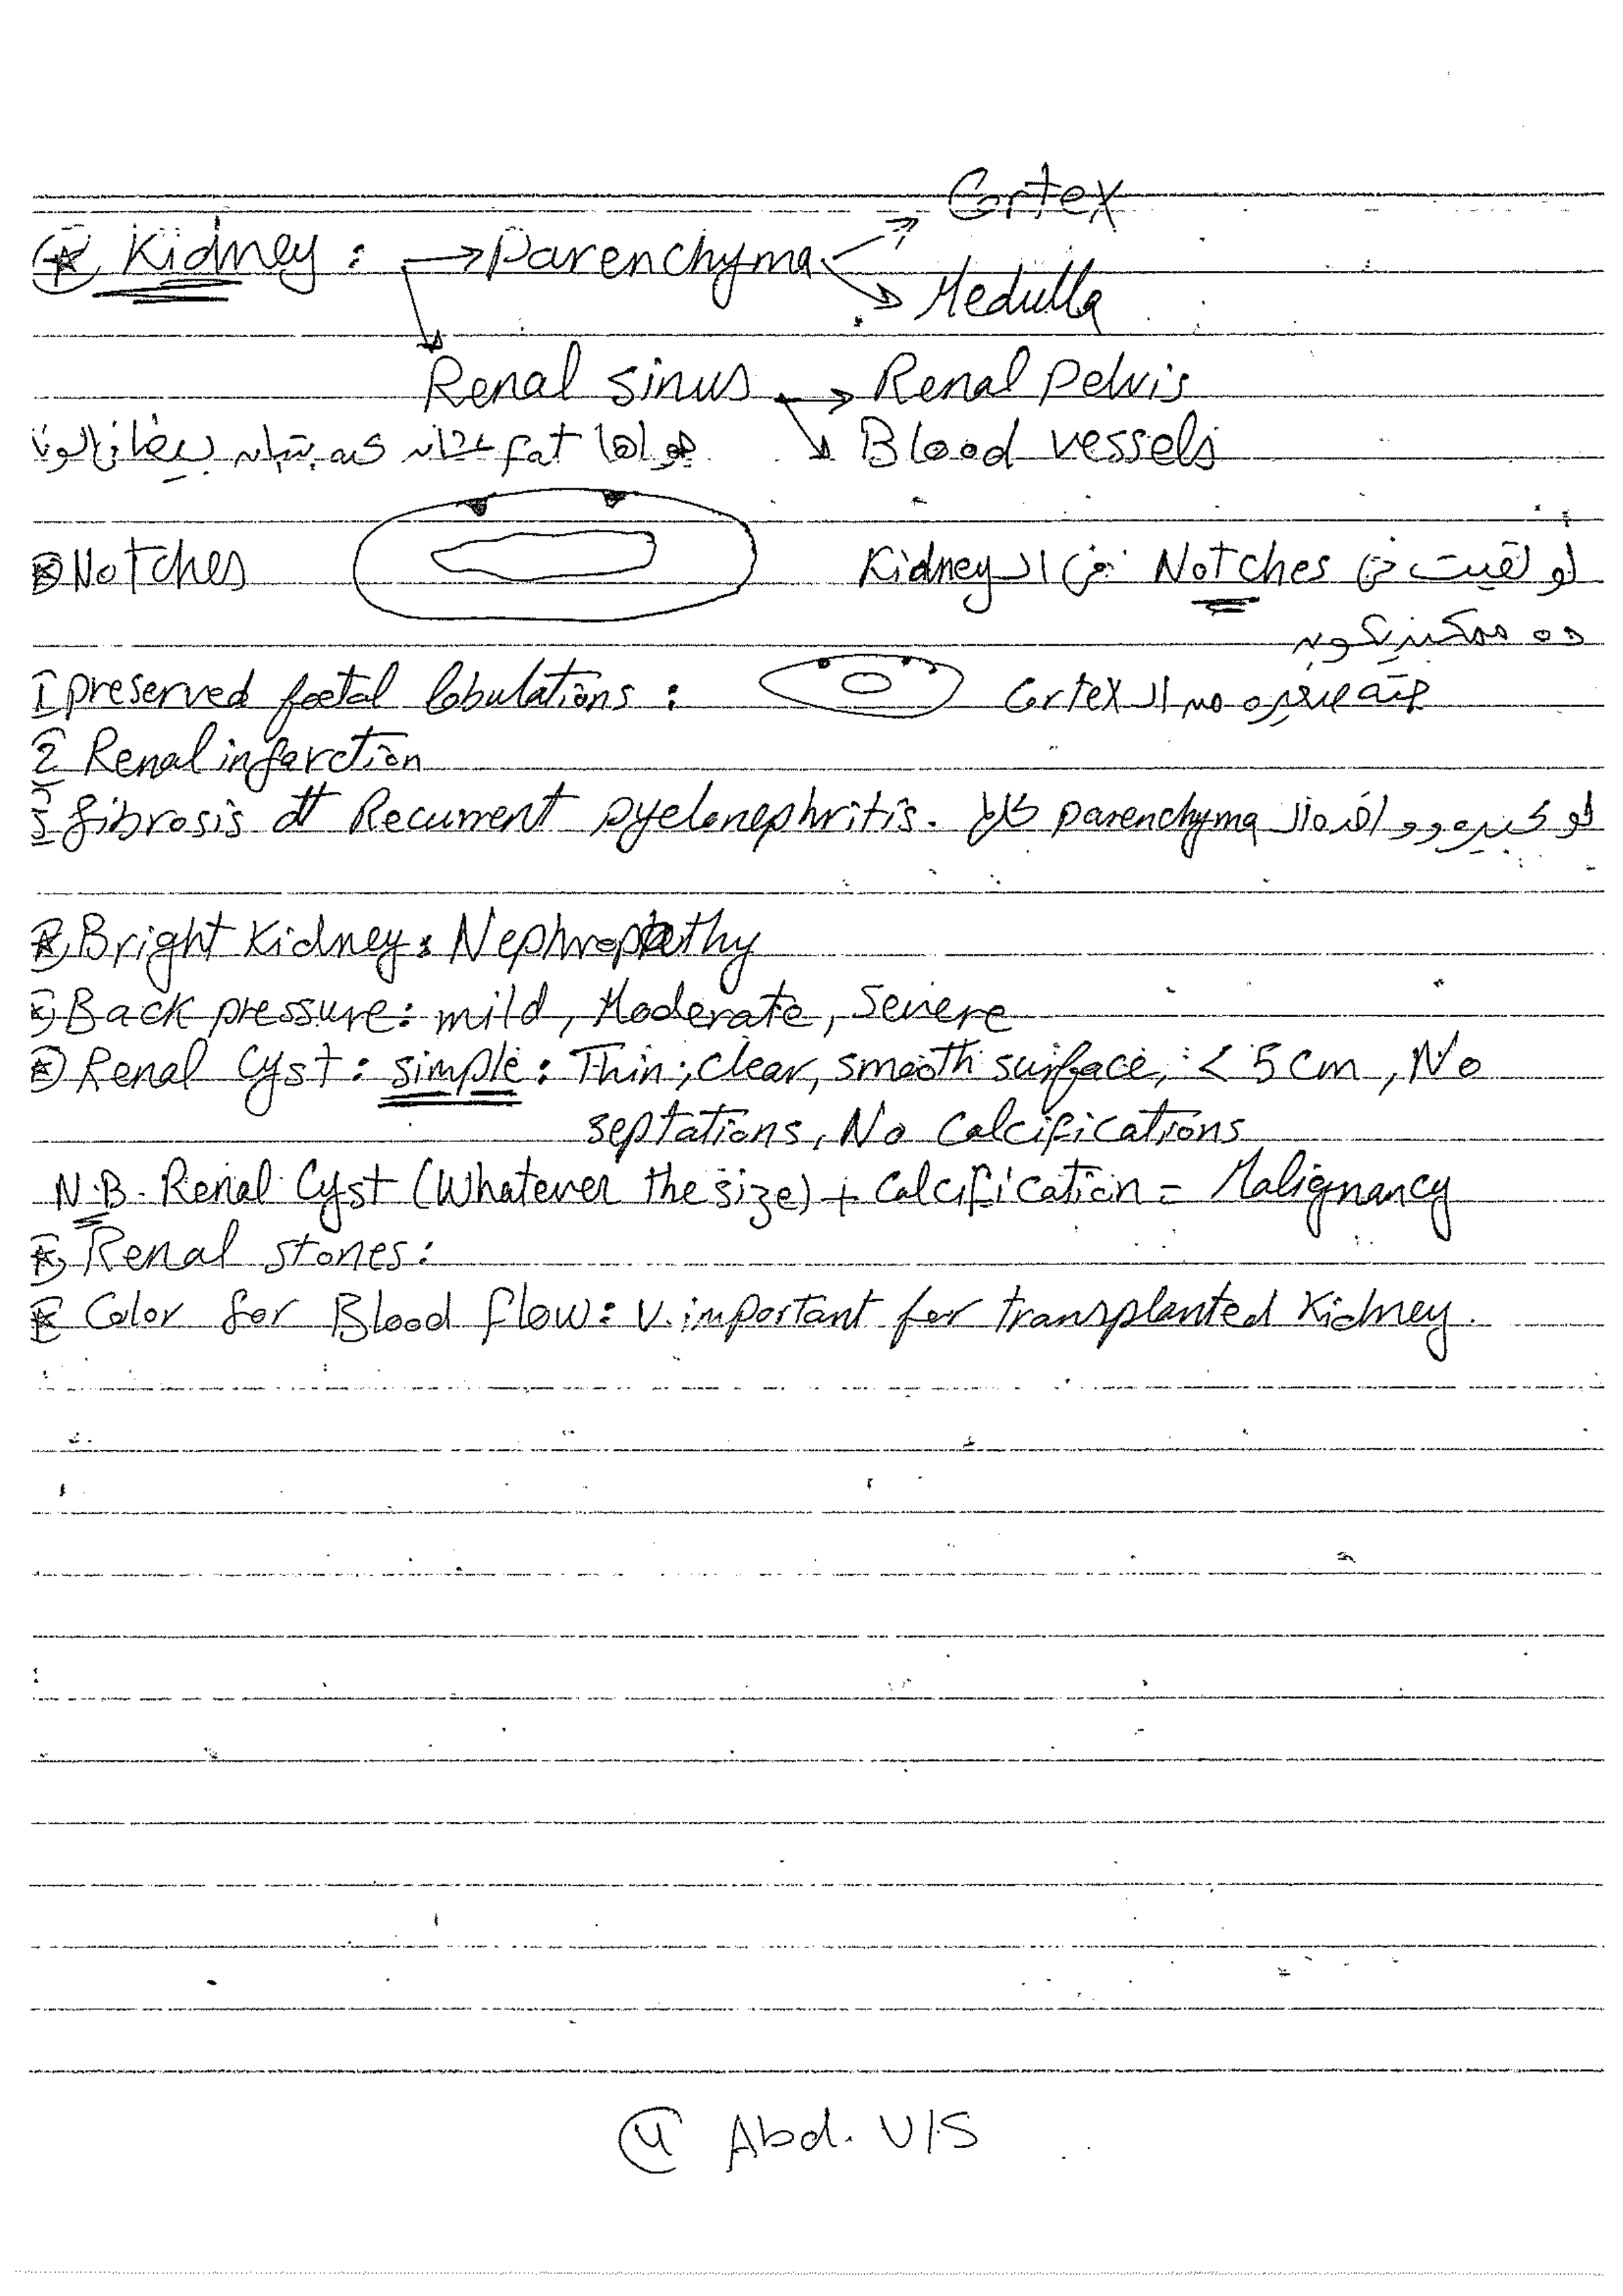 Cortex
Kidney : → Parenchyma
Medulla
Renal sinus → Renal Pelvis
حواليها fat علشان كده بتبان بيضا في السونار
Blood vessels
Notches لو لقيت في Notches في الـ Kidney
ده ممكن يكون
1 preserved foetal lobulations : حتة صغيره من الـ Cortex
2 Renal infarction
3 fibrosis dt Recurrent pyelonephritis. لو كبيره وواخده الـ parenchyma كلها
Bright Kidney: Nephropathy
Back pressure: mild, Moderate, Severe
Renal Cyst: simple: Thin, clear, smooth surface, < 5 cm, No
septations, No Calcifications
N.B. Renal Cyst (Whatever the size) + Calcification = Malignancy
Renal stones:
Color for Blood flow: V. important for transplanted Kidney.
4 Abd. U/S